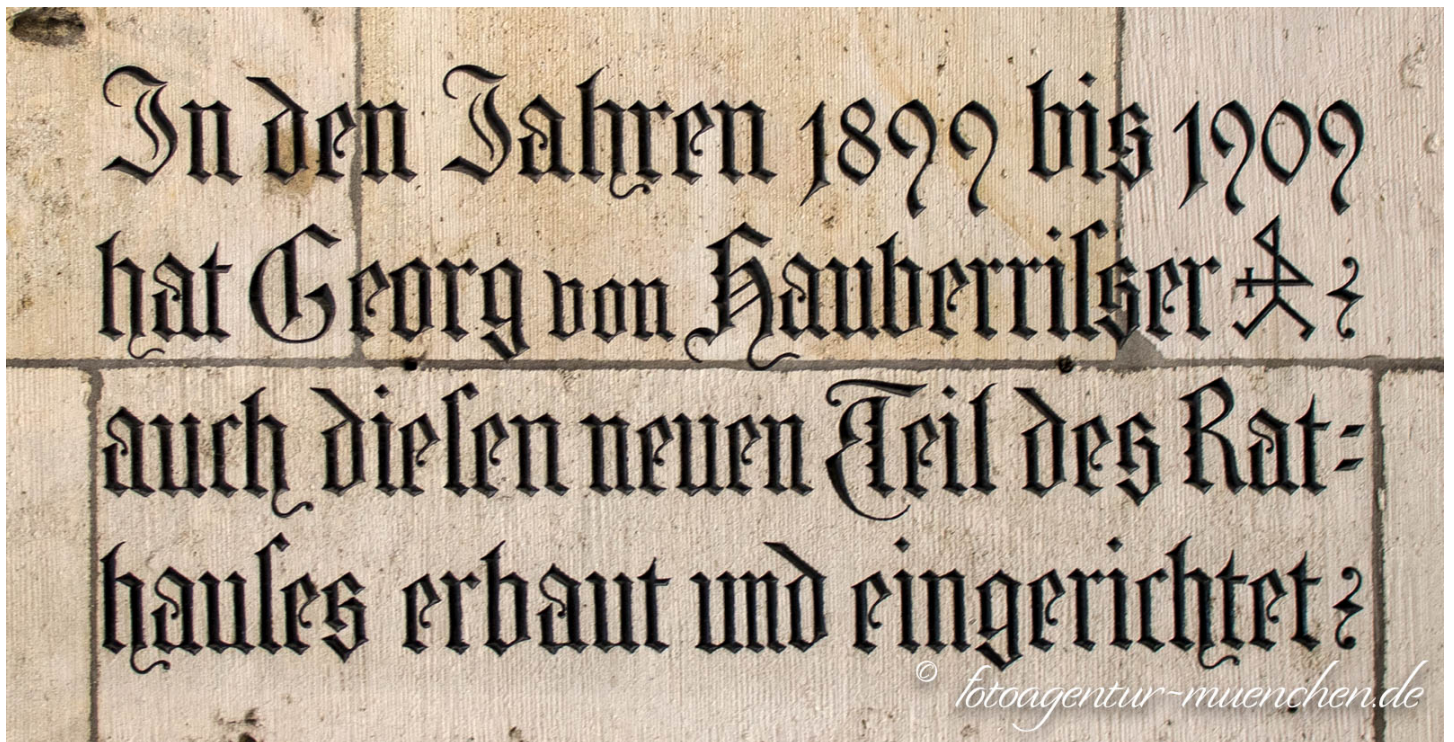 In den Jahren 1899 bis 1909
hat Georg von Hauberriſser
auch dieſen neuen Teil des Rat-
hauſes erbaut und eingerichtet
© fotoagentur-muenchen.de